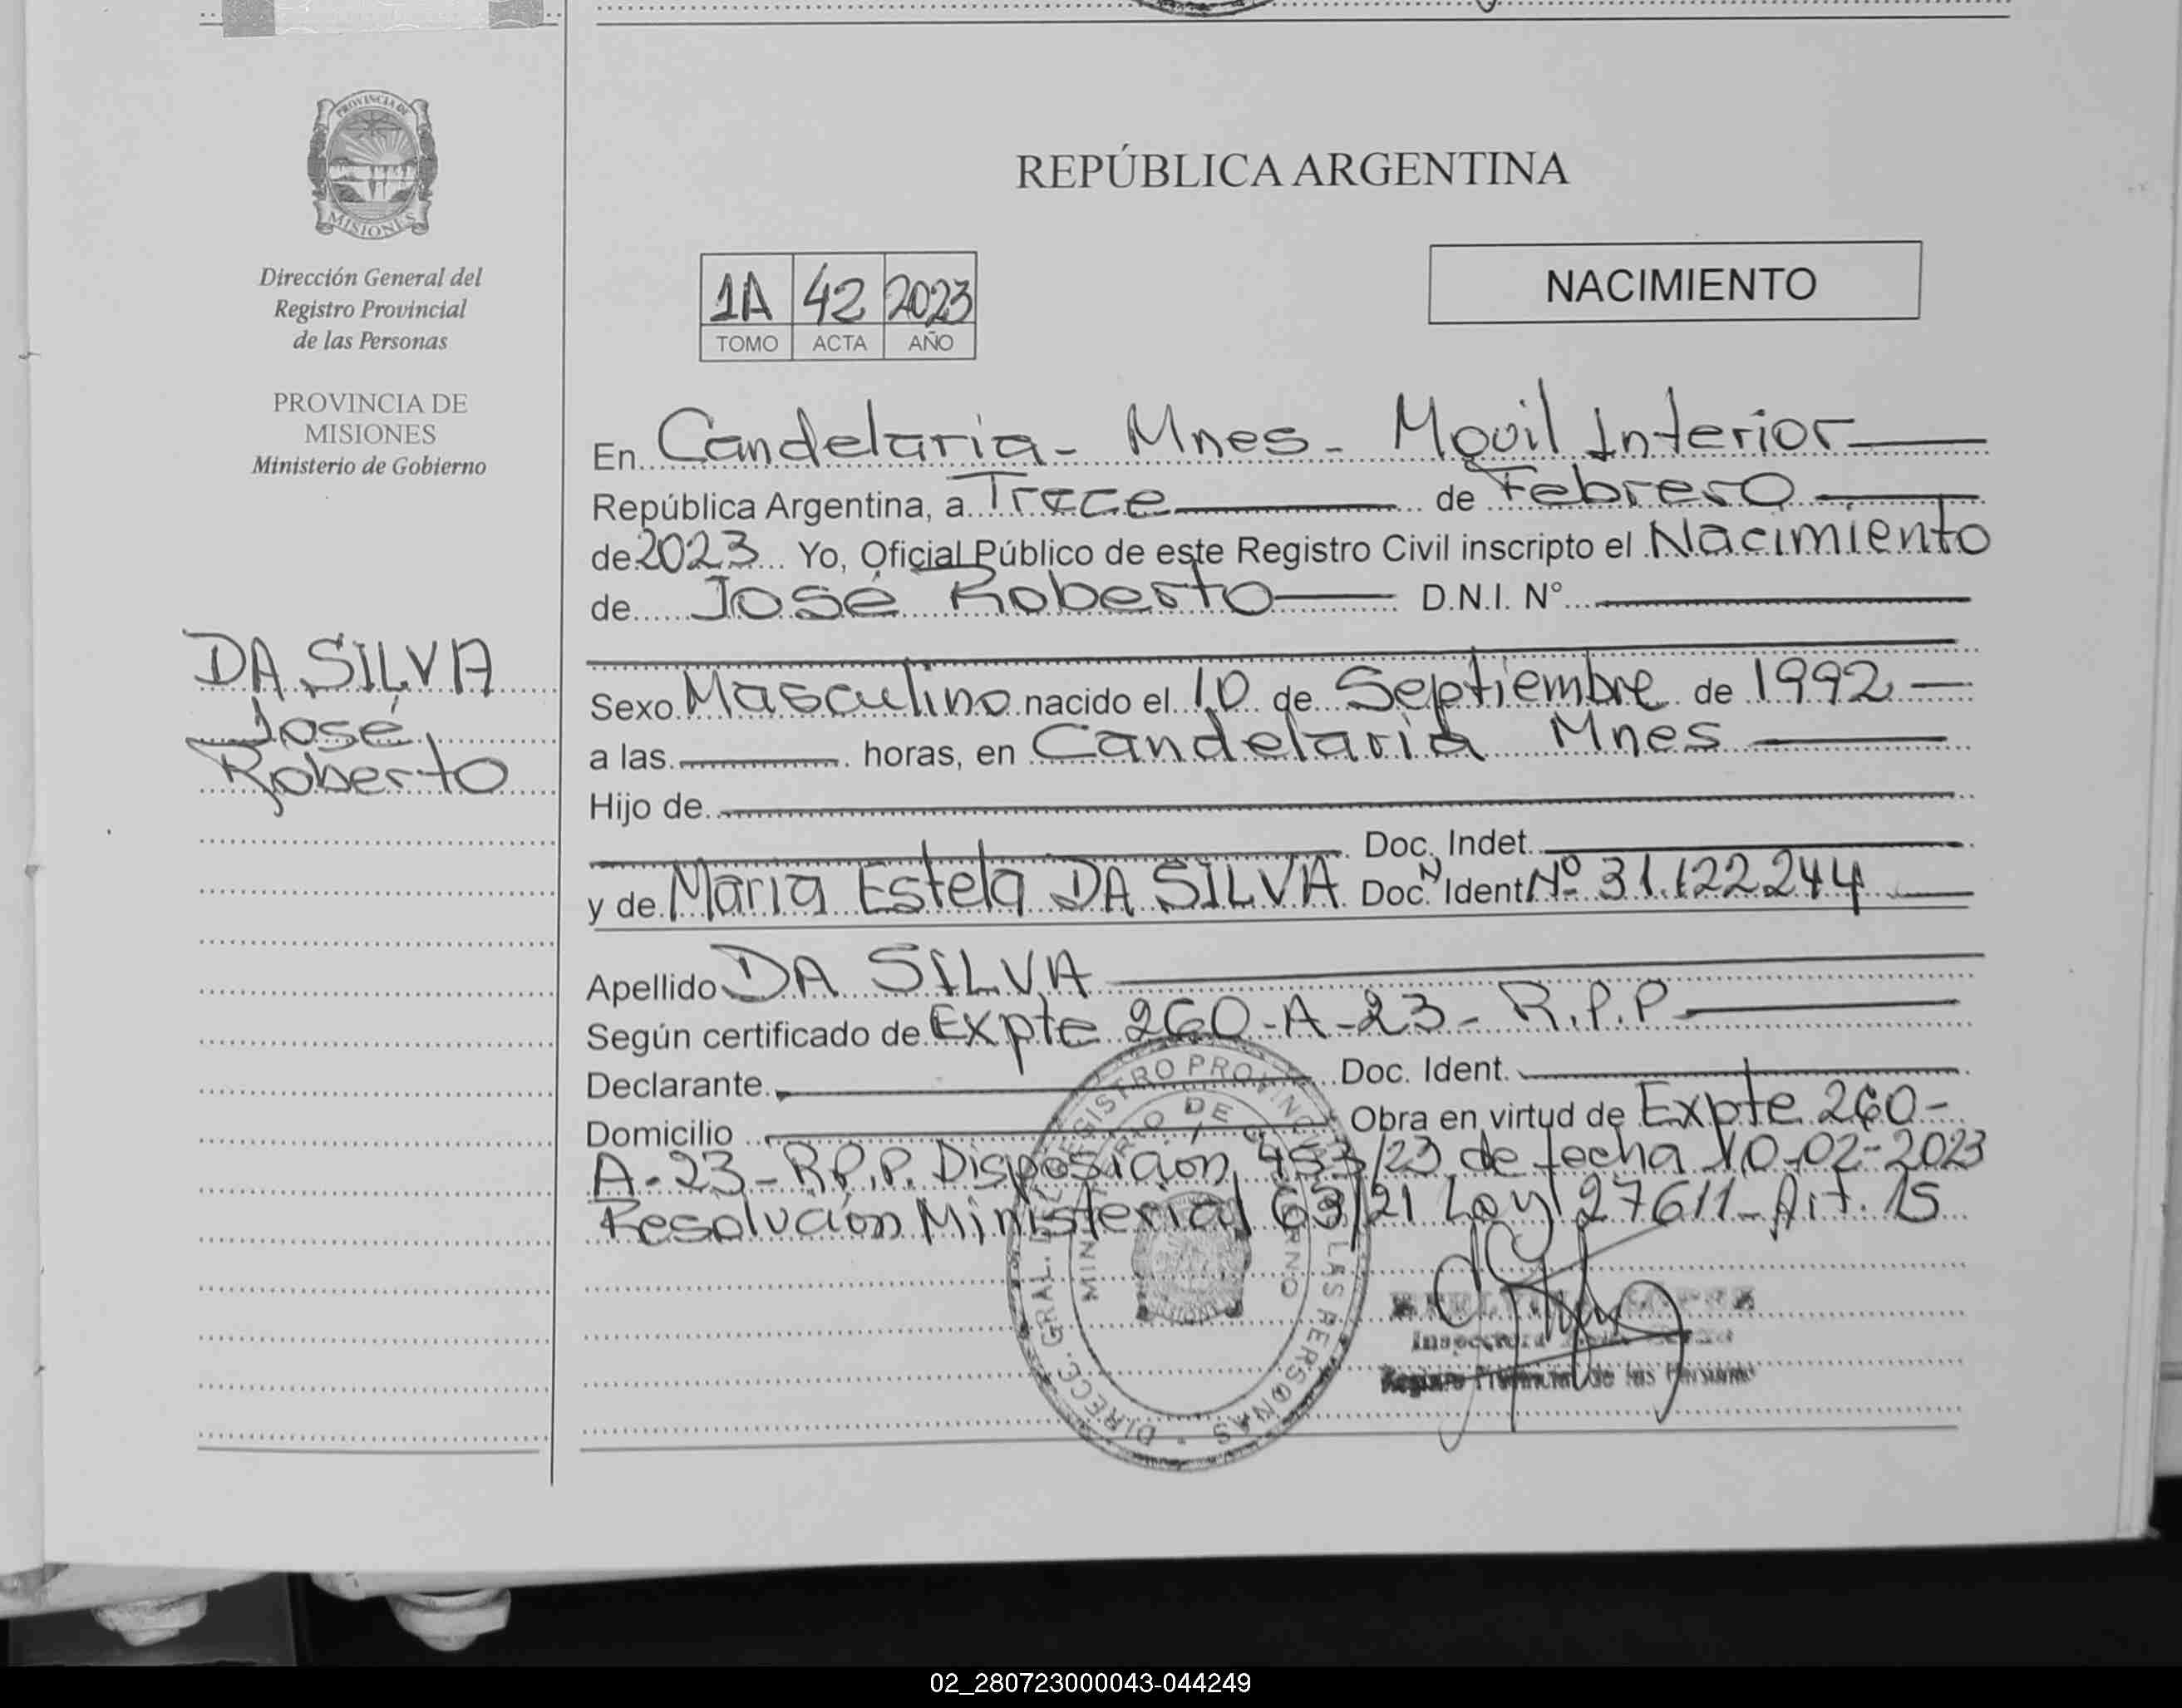 PROVINCIA DE
MISIONES
Dirección General del
Registro Provincial
de las Personas
PROVINCIA DE
MISIONES
Ministerio de Gobierno
DA SILVA
José
Roberto
REPÚBLICA ARGENTINA
1A 42 2023
TOMO ACTA AÑO
NACIMIENTO
En Candelaria - Mnes - Movil Interior
República Argentina, a Trece de Febrero
de 2023 Yo, Oficial Público de este Registro Civil inscripto el Nacimiento
de José Roberto D.N.I. N°
Sexo Masculino nacido el 10 de Septiembre de 1992
a las horas, en Candelaria Mnes
Hijo de
Doc. Indet.
y de Maria Estela DA SILVA Doc. Ident. Nº 31.122.244
Apellido DA SILVA
Según certificado de Expte 260-A-23- R.P.P
Declarante Doc. Ident.
Domicilio Obra en virtud de Expte 260-
A-23-R.P.P. Disposicion 453/23 de fecha 10-02-2023
Resolucion Ministerial 63/21 Ley 27611- Art. 15
DIRECC. GRAL. DEL REGISTRO PROVINCIAL DE LAS PERSONAS
MINISTERIO DE GOBIERNO
Inspectora
Registro Provincial de las Personas
02_280723000043-044249